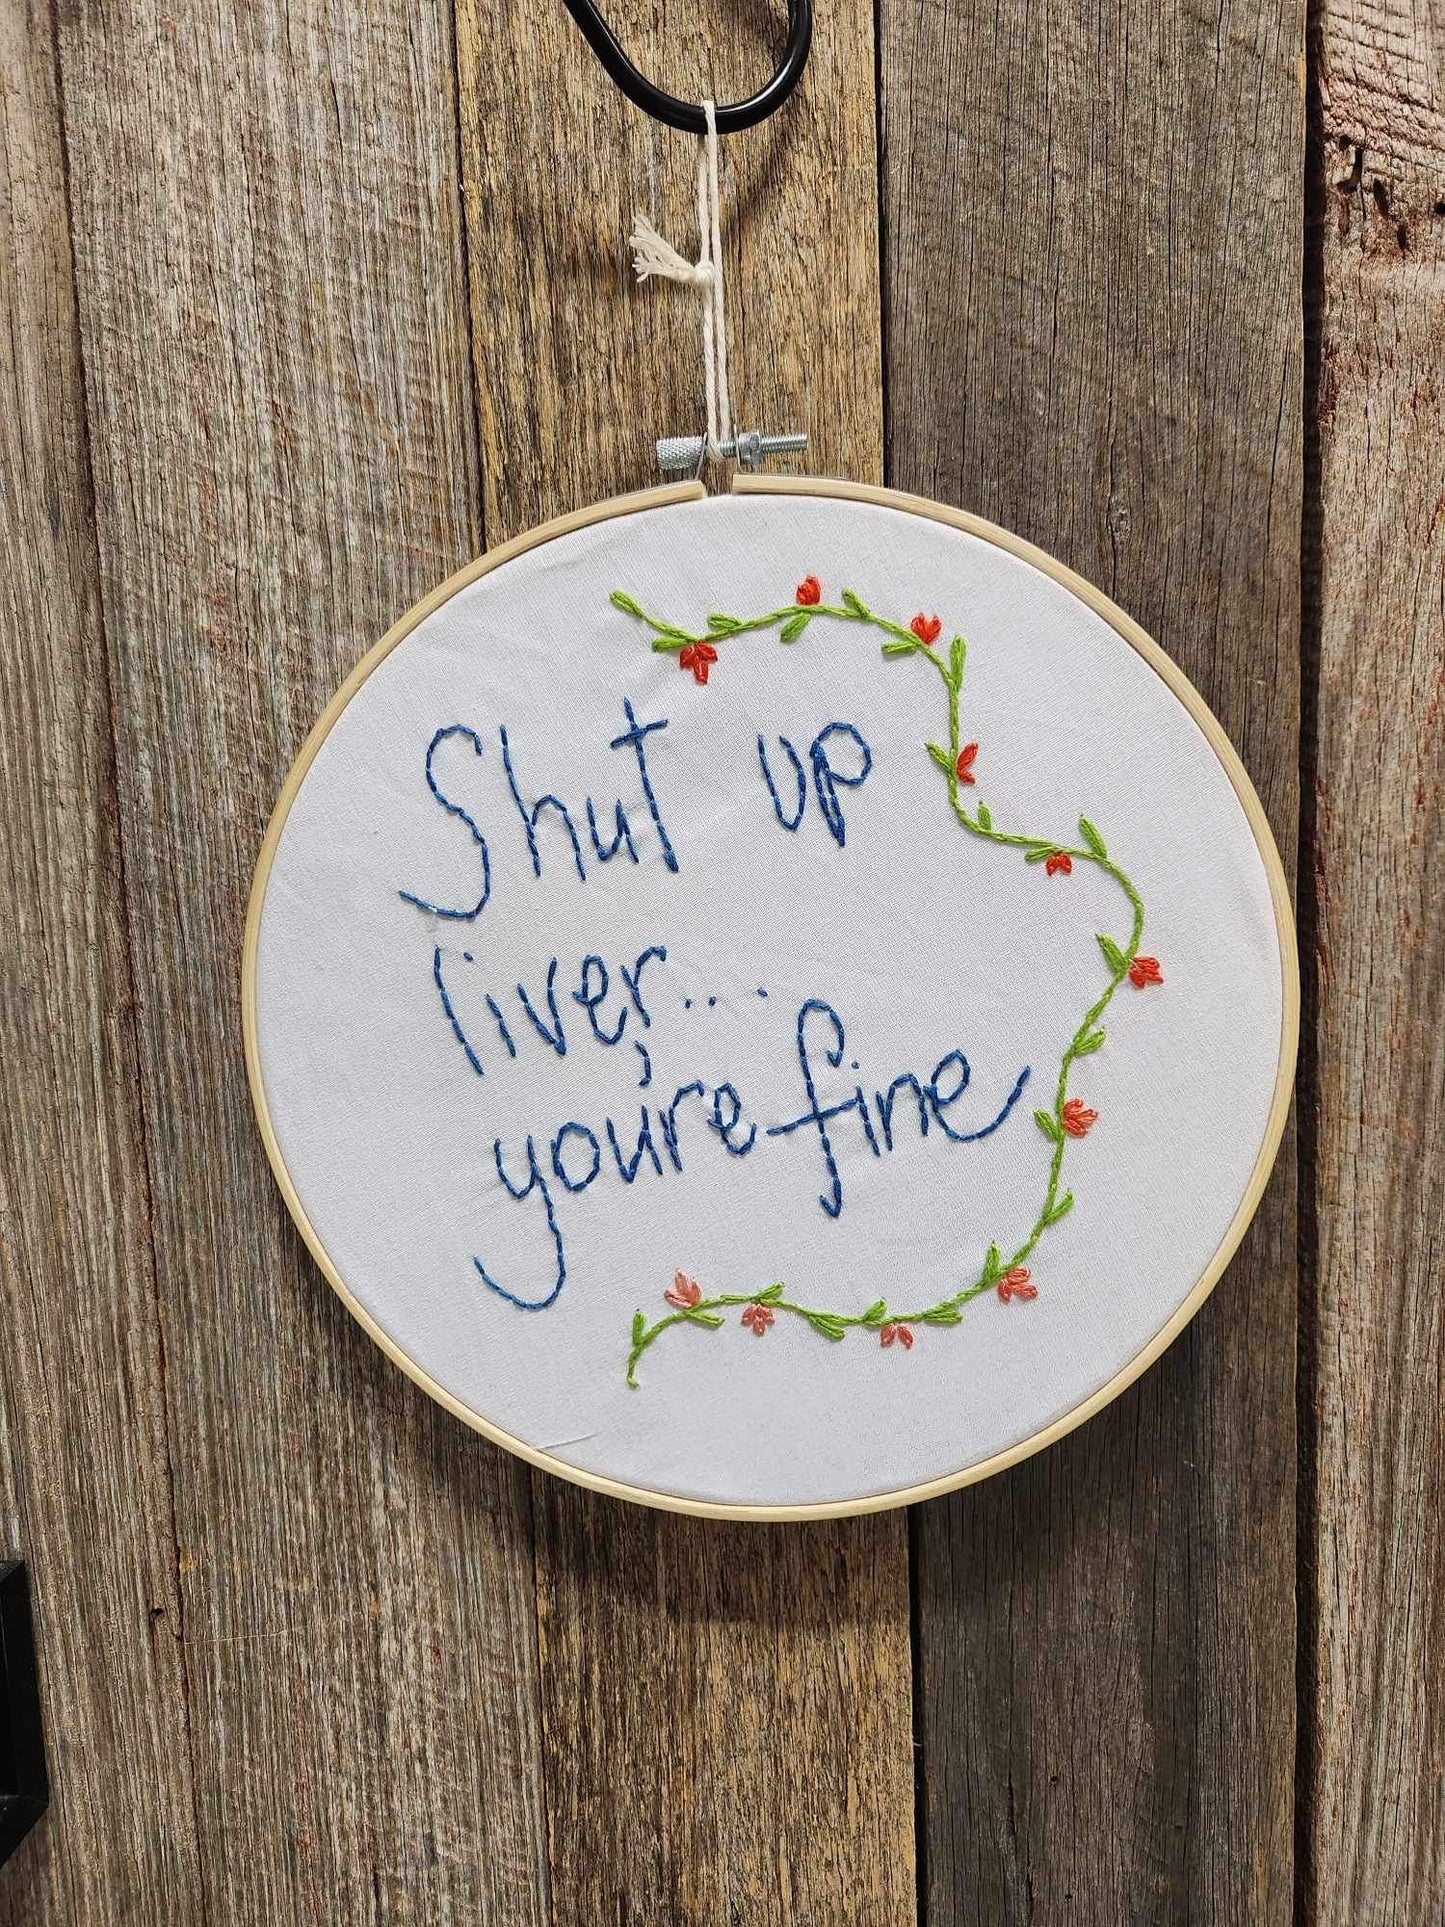 Shut up
liver...
you're fine